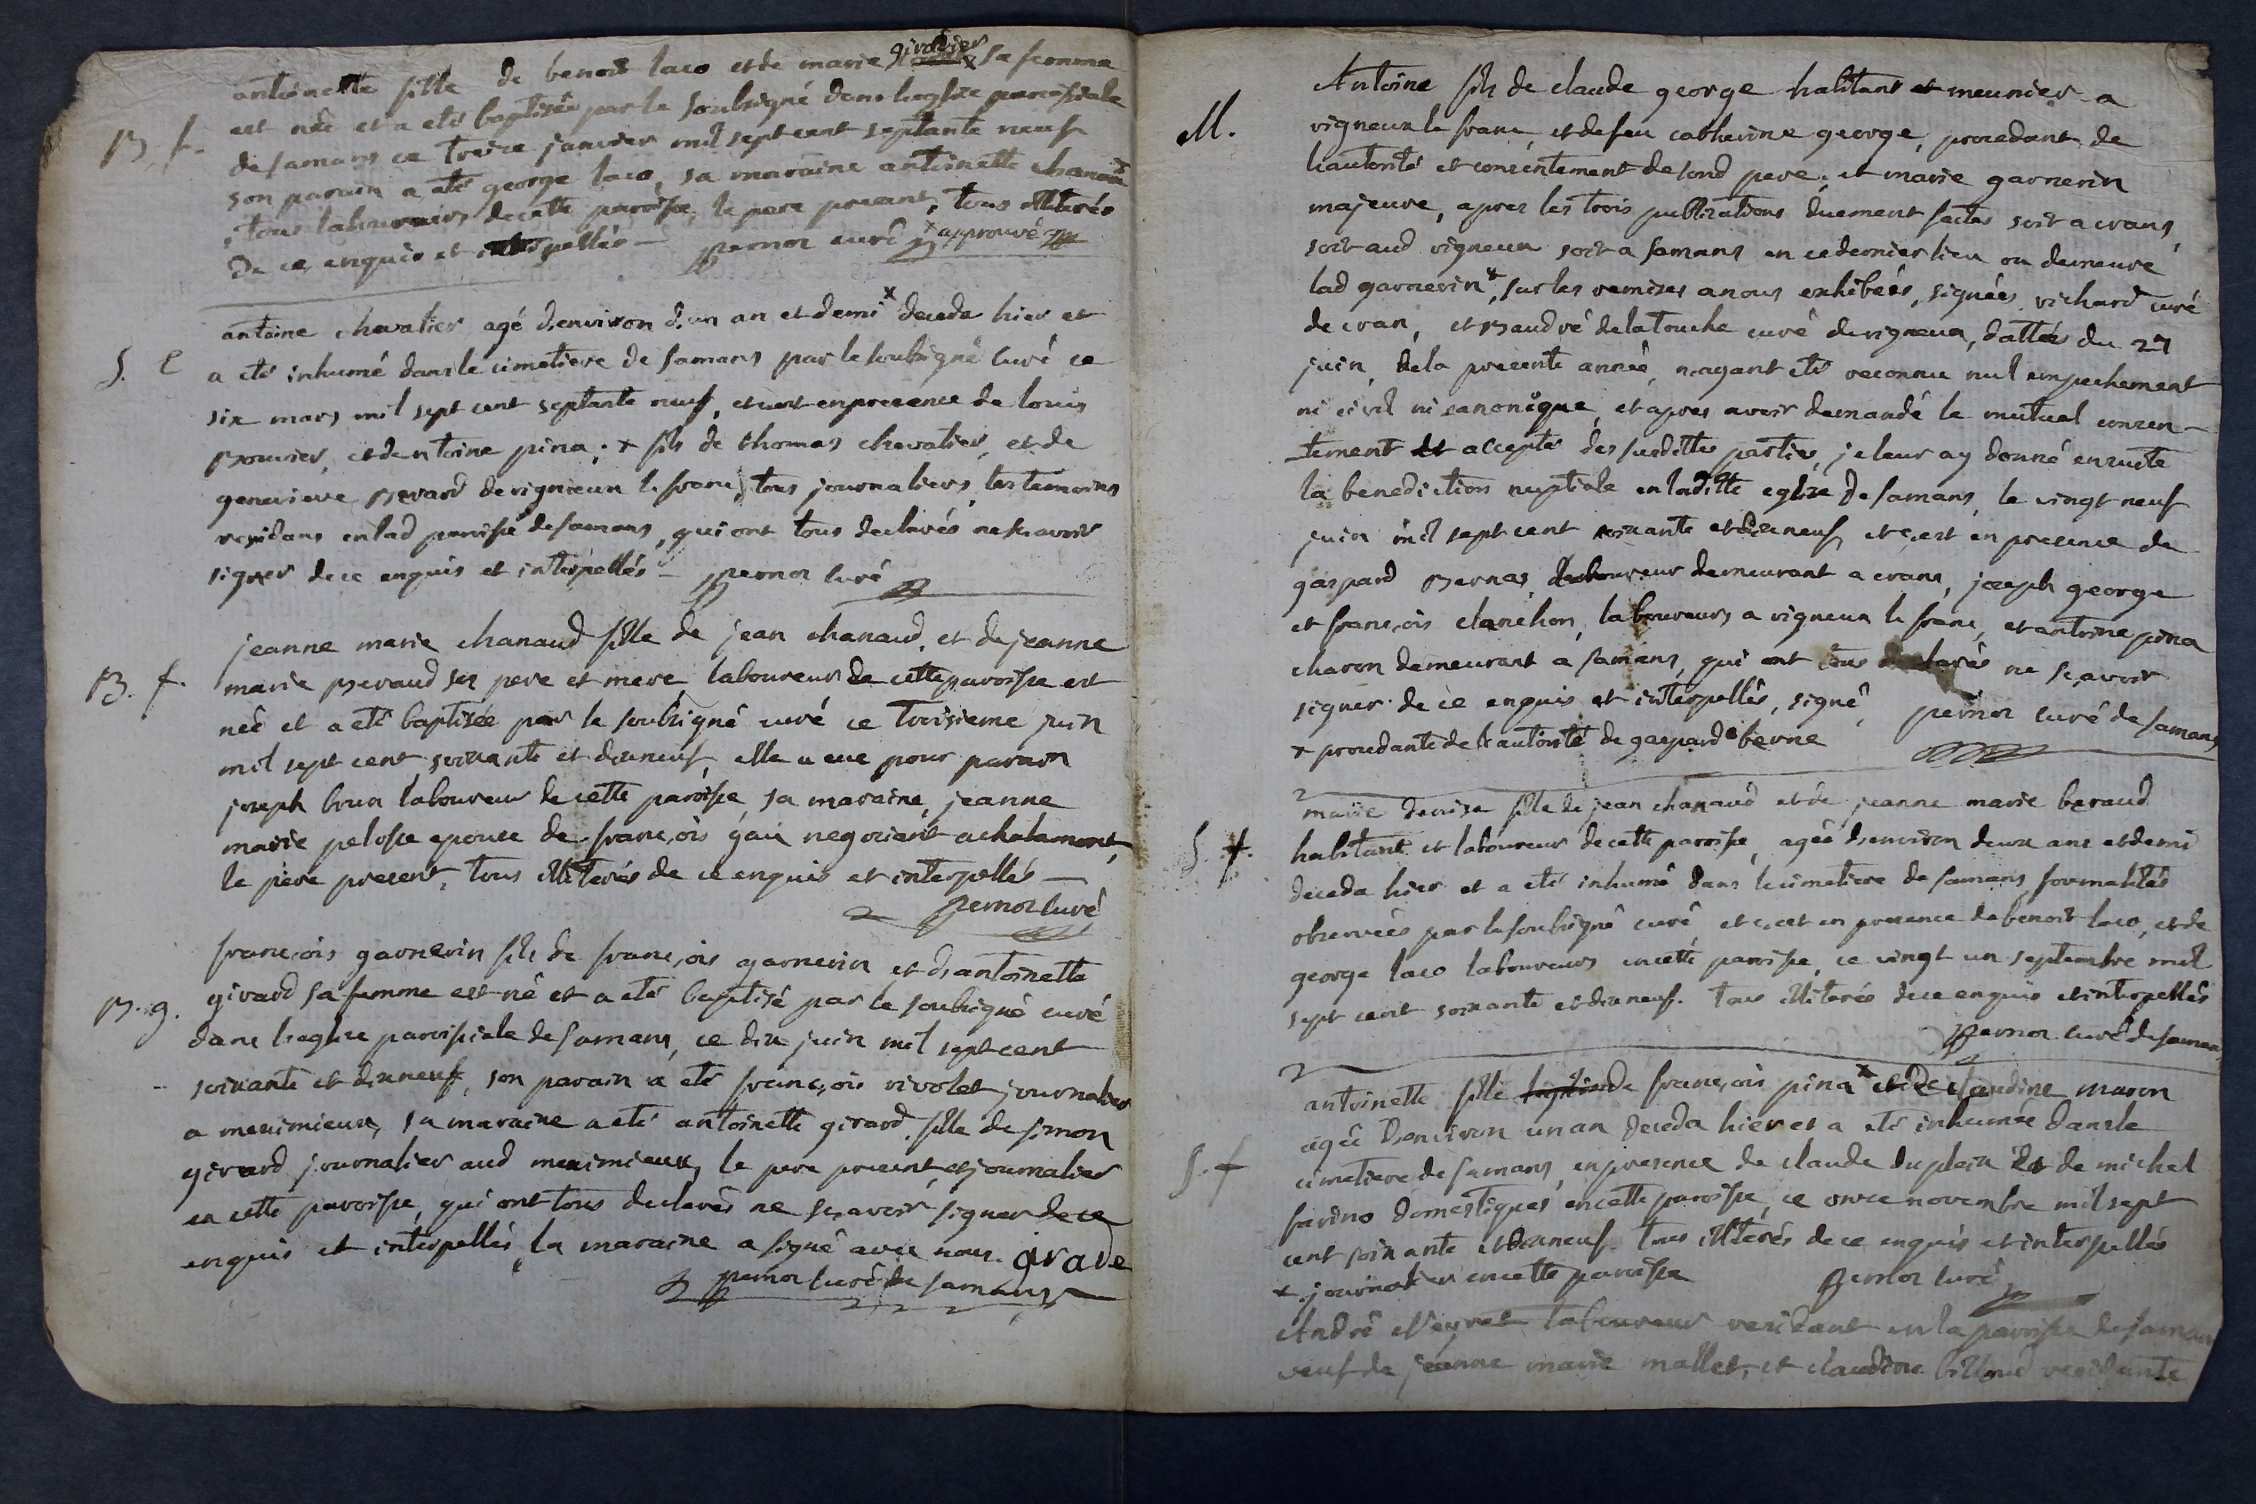 antoinette fille de benoit laco et de marie girodier x sa femme
B. f. est née et a été baptisée par le soubsigné dans l'eglise paroissiale
de samans ce treize janvier mil sept cent septante neuf
son parain a été george laco, sa maraine antoinette chanaud
, tous laboureurs de cette paroisse, le pere present, tous illiterés
de ce enquis et interpellés — pernor curé x approuvé
antoine chevalier agé d'environ d'un an et demi x deceda hier et
S. a été inhumé dans le cimetiere de samans par le soubsigné curé ce
six mars mil sept cent septante neuf, et c'est en presence de louis
Bouvier, et d'entoine pina. x fils de thomas chevalier, et de
genevieve Berard de vignieux le franc, tous journaliers, les temoins
residans en lad paroisse de samans, qui ont tous declarés ne sçavoir
signer de ce enquis et interpellés — pernor curé
jeanne marie chanaud fille de jean chanaud, et de jeanne
B. f. marie Beraud ses pere et mere, laboureur de cette paroisse est
née et a été baptisée par le soubsigné curé ce troisieme juin
mil sept cent soixante et dixneuf, elle a eue pour parain
joseph brun laboureur de cette paroisse, sa maraine, jeanne
marie pelosse epouse de françois gai negociant a chalamont,
le père present, tous illiterés de ce enquis et interpellés —
pernor curé
françois garnerin fils de françois garnerin et d'antoinette
B. g. girard sa femme est né et a été baptisé par le soubsigné curé
dans l'eglise paroissiale de samans, ce dix juin mil sept cent
soixante et dixneuf, son parain a été françois rivolet journalier
a meximieux, sa maraine a été antoinette girard, fille de simon
girard journalier aud meximieux, le pere present et journalier
en cette paroisse, qui ont tous declarés ne sçavoir signer de ce
enquis et interpellés, la maraine a signé avec nous. girade
pernor curé de samans
Antoine fils de claude george habitant et meunier a
M. vigneux le franc, et de feu catherine george, procedant de
l'autorité et consentement de sond pere, et marie garnerin
majeure, apres les trois publications duement faites soit a crans,
soit aud vigneux soit a samans en ce dernier lieu ou demeure
lad garnerin x, sur les remises a nous exhibées, signées richard curé
de cran, et Baudré de la touche curé de vigneux, dattée du 27
juin, de la presente année, n'ayant été reconnu nul empechement
ni civil ni canonique, et apres avoir demandé le mutuel consen-
-tement et accepté des susdittes parties, je leur ay donné ensuite
la benediction nuptiale en laditte eglise de samans, le vingt neuf
juin mil sept cent soixante et dixneuf, et c'est en presence de
gaspard Bernas, laboureur demeurant a crans, joseph george
et françois clanchon, laboureurs a vigneux le franc, et antoine pina
charon demeurant a samans, qui ont tous declarés ne sçavoir
signer de ce enquis et interpellés, signé, pernor curé de samans
x procedante de l'autorité de gaspard berne
marie denise fille de jean chanaud et de jeanne marie beraud
S. f. habitant et laboureur de cette paroisse, agée d'environ deux ans et demi
deceda hier et a été inhumé dans le cimetiere de samans, formalités
observées par le soubsigné curé, et c'est en presence de benoit laco, et de
george laco laboureurs en cette paroisse, ce vingt un septembre mil
sept cent soixante et dixneuf. tous illiterés de ce enquis et interpellés
pernor curé de samans
antoinette fille de françois pina x et de claudine maron
agée d'environ un an deceda hier et a été inhumée dans le
S. f cimetiere de samans, en presence de claude duplein et de michel
farino domestiques en cette paroisse, ce onze novembre mil sept
cent soixante et dixneuf. tous illiterés de ce enquis et interpellés
x journalier en cette paroisse pernor curé
André Neyret laboureur residant en la paroisse de samans
veuf de jeanne marie mallet, et claudine billoud residante